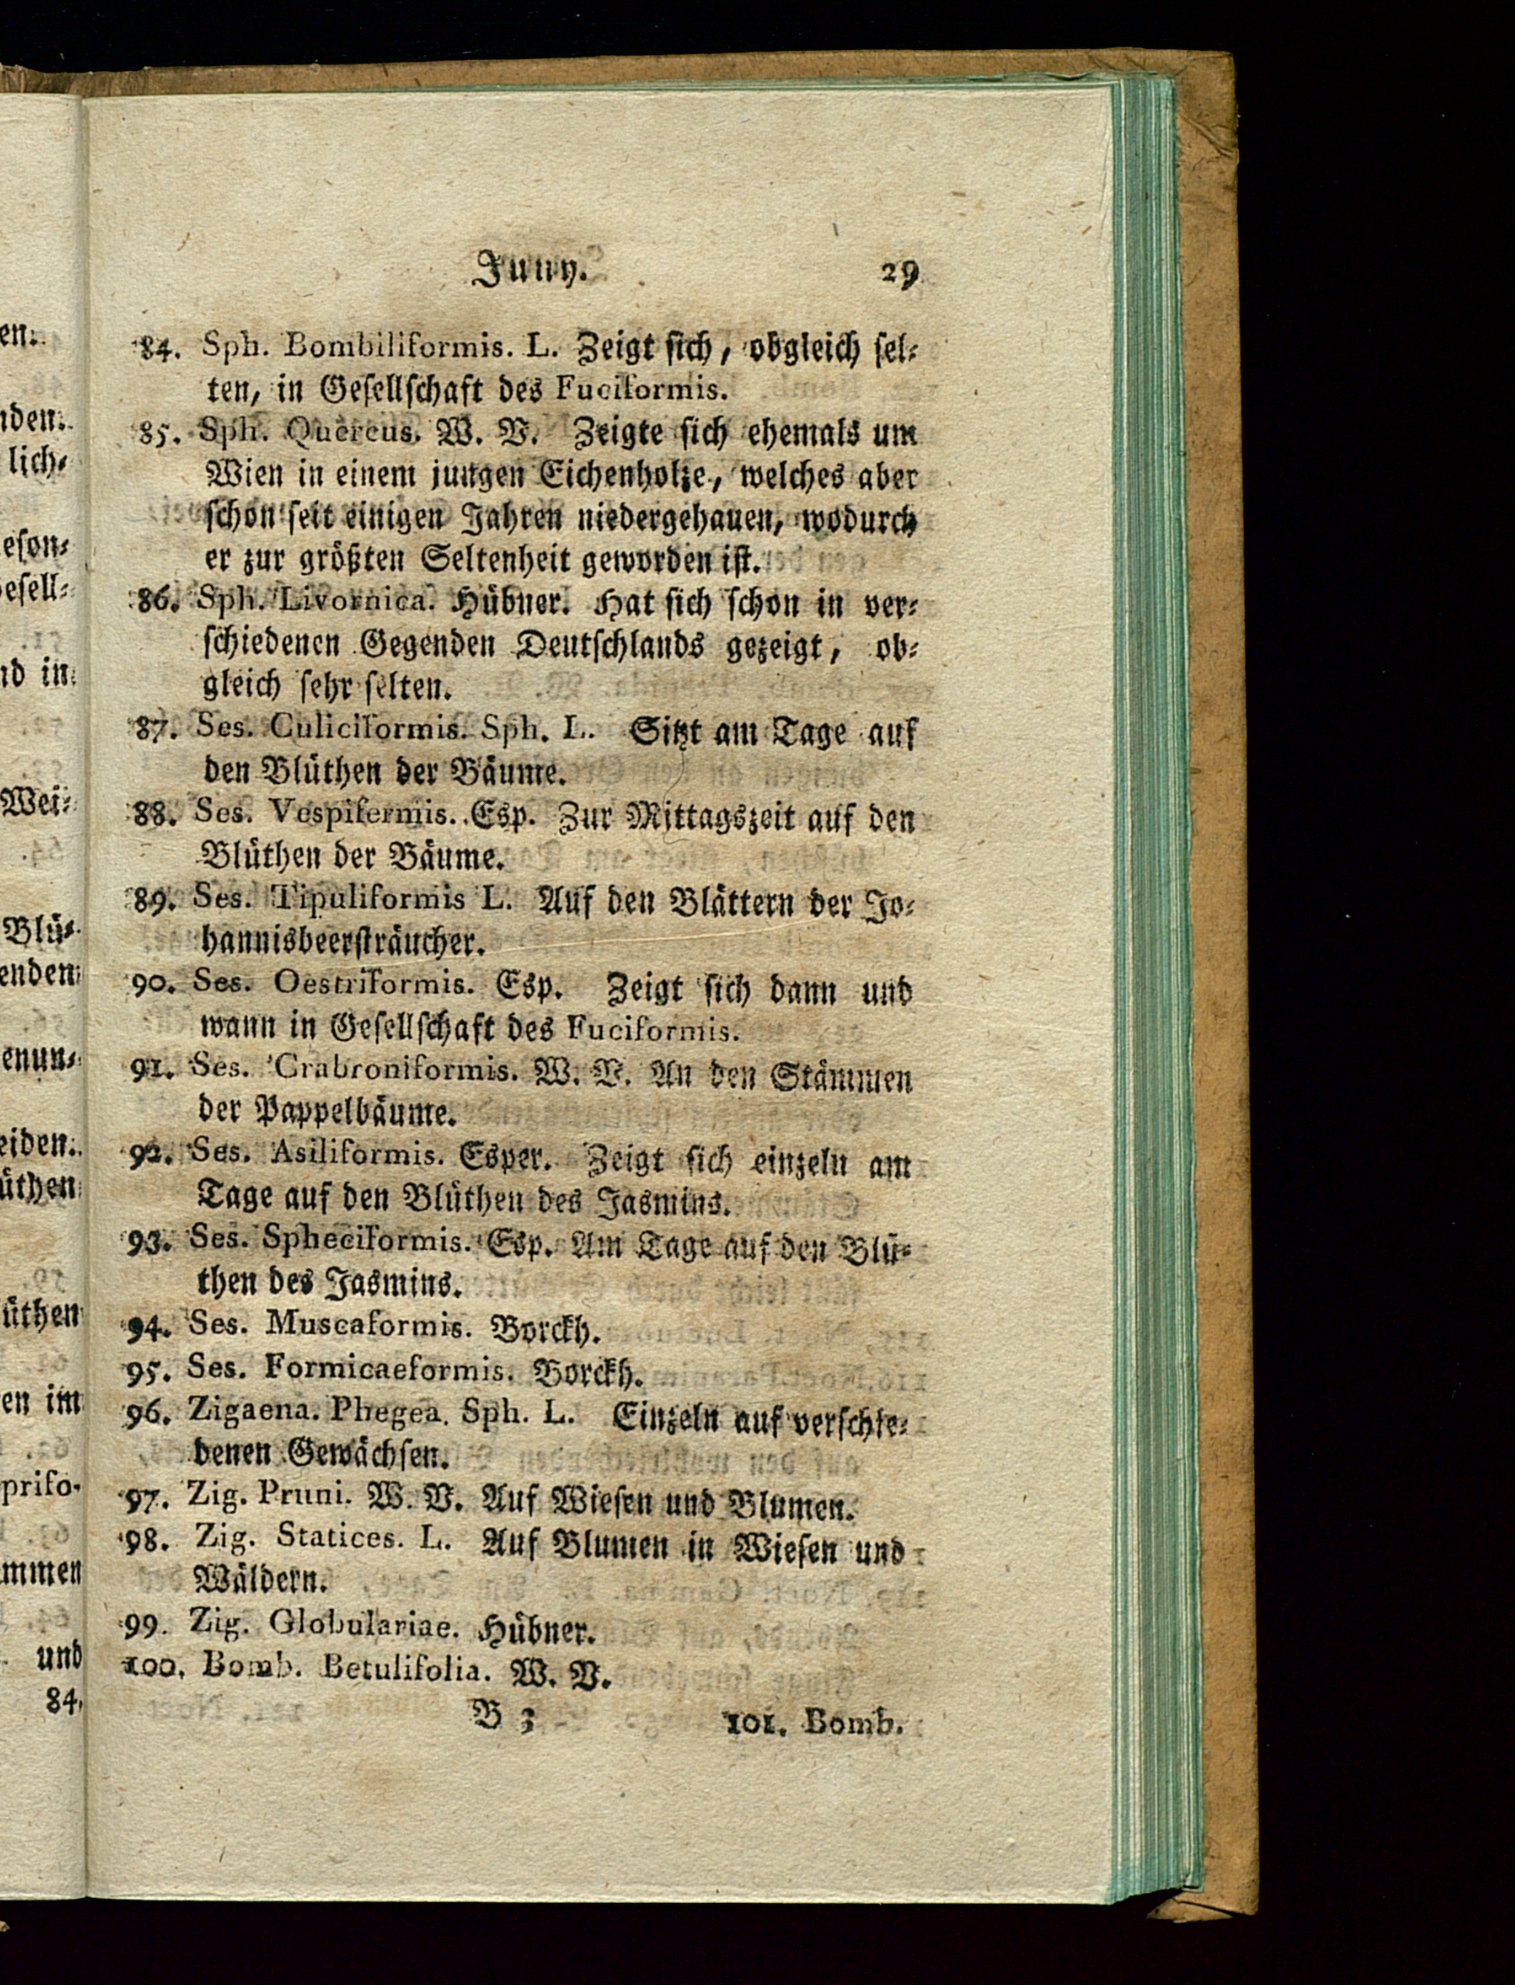 Juny. 29
84. Sph. Bombiliformis. L. Zeigt sich, obgleich sel⸗
ten, in Gesellschaft des Fuciformis.
85. Sph. Quercus. W. V. Zeigte sich ehemals um
Wien in einem jungen Eichenholze, welches aber
schon seit einigen Jahren niedergehauen, wodurch
er zur größten Seltenheit geworden ist.
86. Sph. Livornica. Hübner. Hat sich schon in ver⸗
schiedenen Gegenden Deutschlands gezeigt, ob⸗
gleich sehr selten.
87. Ses. Culiciformis. Sph. L. Sitzt am Tage auf
den Blüthen der Bäume.
88. Ses. Vespiformis. Esp. Zur Mittagszeit auf den
Blüthen der Bäume.
89. Ses. Tipuliformis L. Auf den Blättern der Jo⸗
hannisbeersträucher.
90. Ses. Oestriformis. Esp. Zeigt sich dann und
wann in Gesellschaft des Fuciformis.
91. Ses. Crabroniformis. W. V. An den Stämmen
der Pappelbäume.
92. Ses. Asiliformis. Esper. Zeigt sich einzeln am
Tage auf den Blüthen des Jasmins.
93. Ses. Spheciformis. Esp. Am Tage auf den Blü⸗
then des Jasmins.
94. Ses. Muscaformis. Borckh.
95. Ses. Formicaeformis. Borckh.
96. Zigaena. Phegea. Sph. L. Einzeln auf verschie⸗
denen Gewächsen.
97. Zig. Pruni. W. V. Auf Wiesen und Blumen.
98. Zig. Statices. L. Auf Blumen in Wiesen und
Wäldern.
99. Zig. Globulariae. Hübner.
100. Bomb. Betulifolia. W. V.
B 3 101. Bomb.